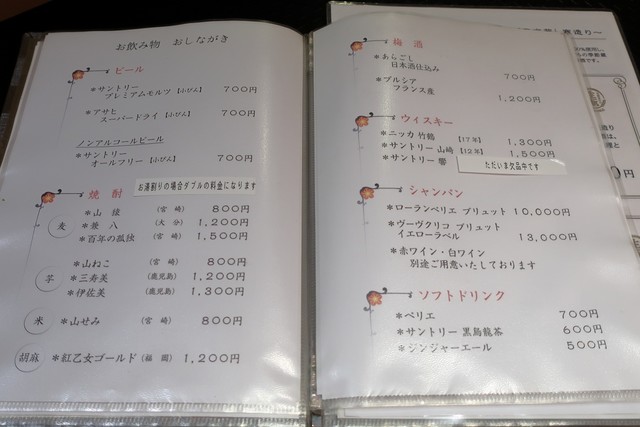 お飲み物 おしながき
ビール
*サントリー
プレミアムモルツ【小びん】 700円
*アサヒ
スーパードライ【小びん】 700円
ノンアルコールビール
*サントリー
オールフリー【小びん】 700円
焼 酎
お湯割りの場合ダブルの料金になります
麦
*山 猿 (宮 崎) 800円
*兼 八 (大 分) 1,200円
*百年の孤独 (宮 崎) 1,500円
芋
*山ねこ (宮 崎) 800円
*三寿美 (鹿児島) 1,200円
*伊佐美 (鹿児島) 1,300円
米
*山せみ (宮 崎) 800円
胡麻
*紅乙女ゴールド (福 岡) 1,200円
梅 酒
*あらごし
日本酒仕込み 700円
*プルシア
フランス産 1,200円
ウィスキー
*ニッカ 竹鶴 【17年】 1,300円
*サントリー 山崎 【12年】 1,500円
*サントリー 響
ただいま欠品中です
シャンパン
*ローランペリエ ブリュット 10,000円
*ヴーヴクリコ ブリュット
イエローラベル 13,000円
*赤ワイン・白ワイン
別途ご用意いたしております
ソフトドリンク
*ペリエ 700円
*サントリー 黒烏龍茶 600円
*ジンジャーエール 500円